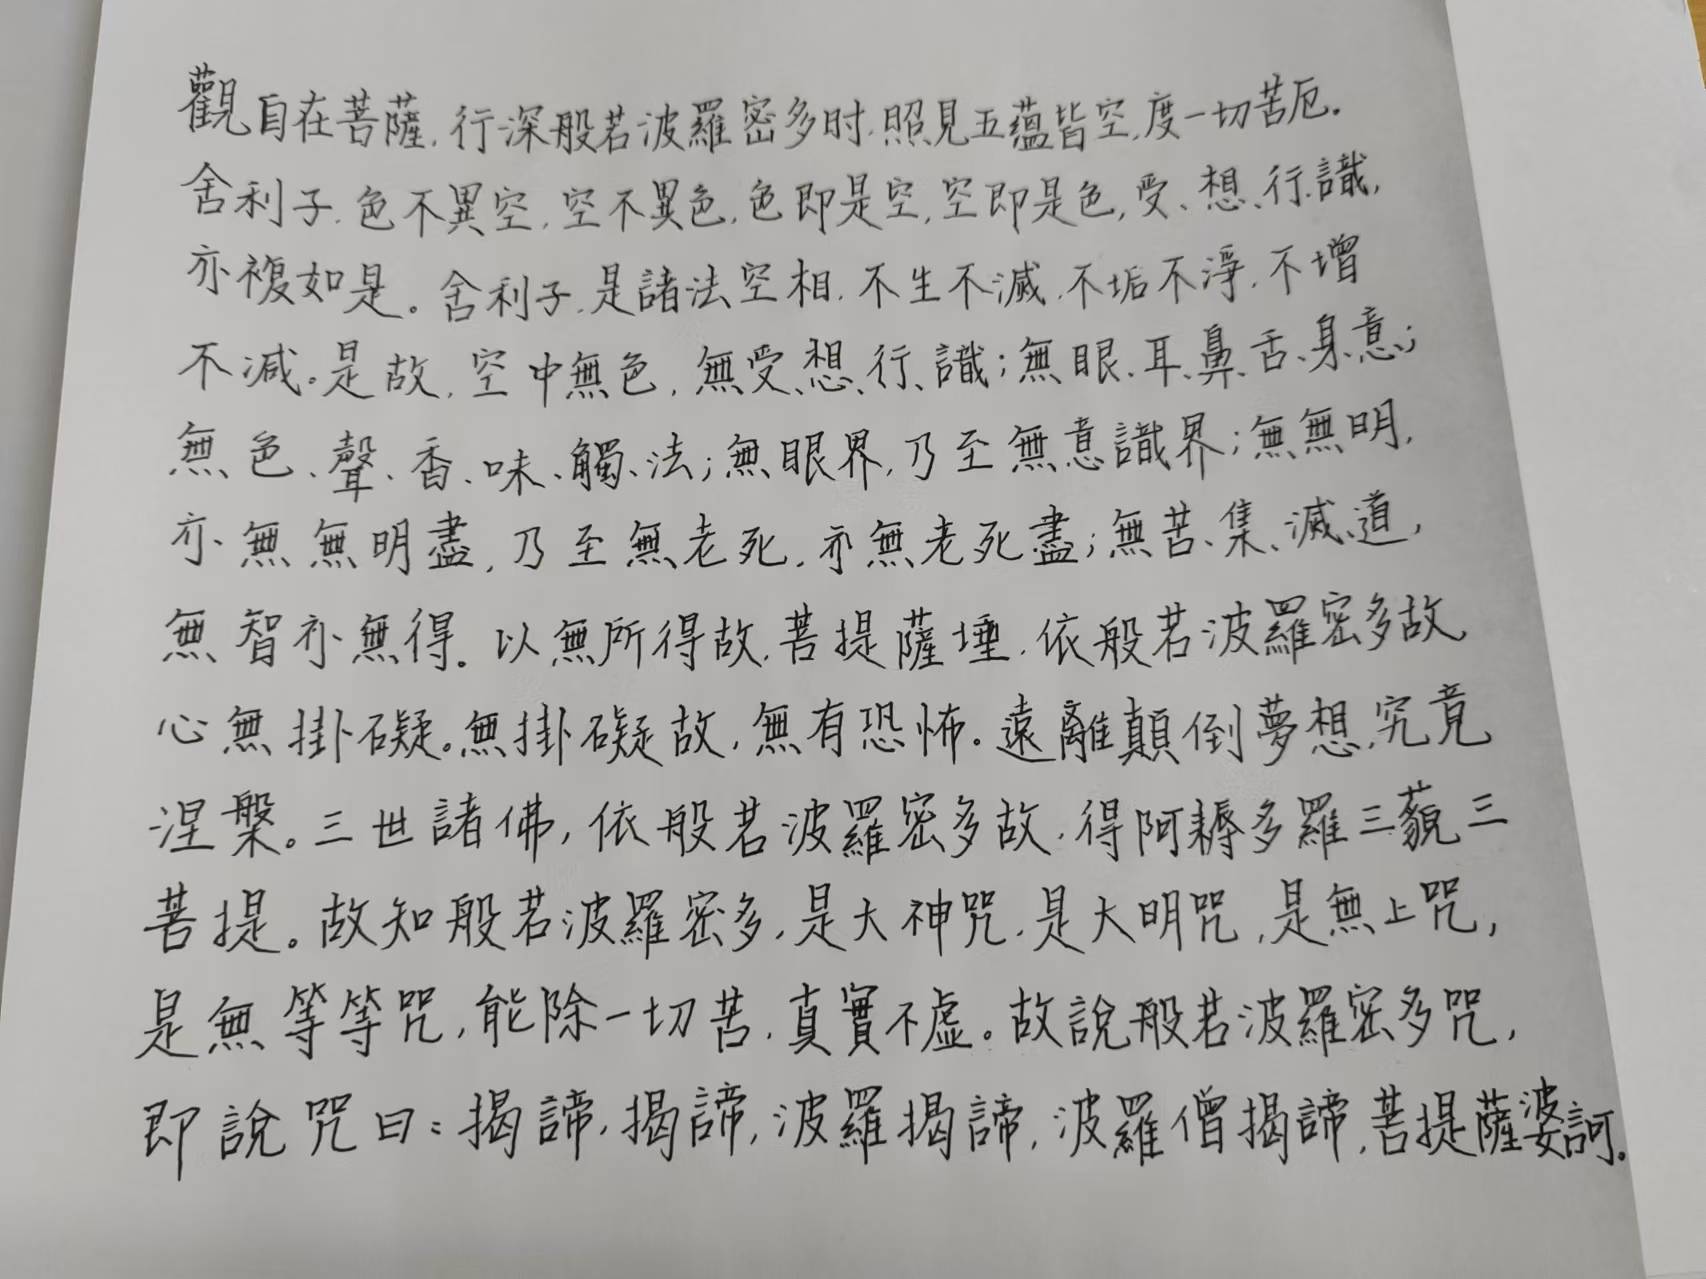 觀自在菩薩，行深般若波羅密多时，照見五蘊皆空，度一切苦厄。
舍利子，色不異空，空不異色，色即是空，空即是色，受、想、行、識，
亦複如是。舍利子，是諸法空相，不生不滅，不垢不淨，不增
不減。是故，空中無色，無受、想、行、識；無眼、耳、鼻、舌、身、意；
無色、聲、香、味、觸、法；無眼界，乃至無意識界；無無明，
亦無無明盡，乃至無老死，亦無老死盡；無苦、集、滅、道，
無智亦無得。以無所得故，菩提薩埵，依般若波羅密多故，
心無掛礙。無掛礙故，無有恐怖。遠離顛倒夢想，究竟
涅槃。三世諸佛，依般若波羅密多故，得阿耨多羅三藐三
菩提。故知般若波羅密多，是大神咒，是大明咒，是無上咒，
是無等等咒，能除一切苦，真實不虛。故說般若波羅密多咒，
即說咒曰：揭諦，揭諦，波羅揭諦，波羅僧揭諦，菩提薩婆訶。